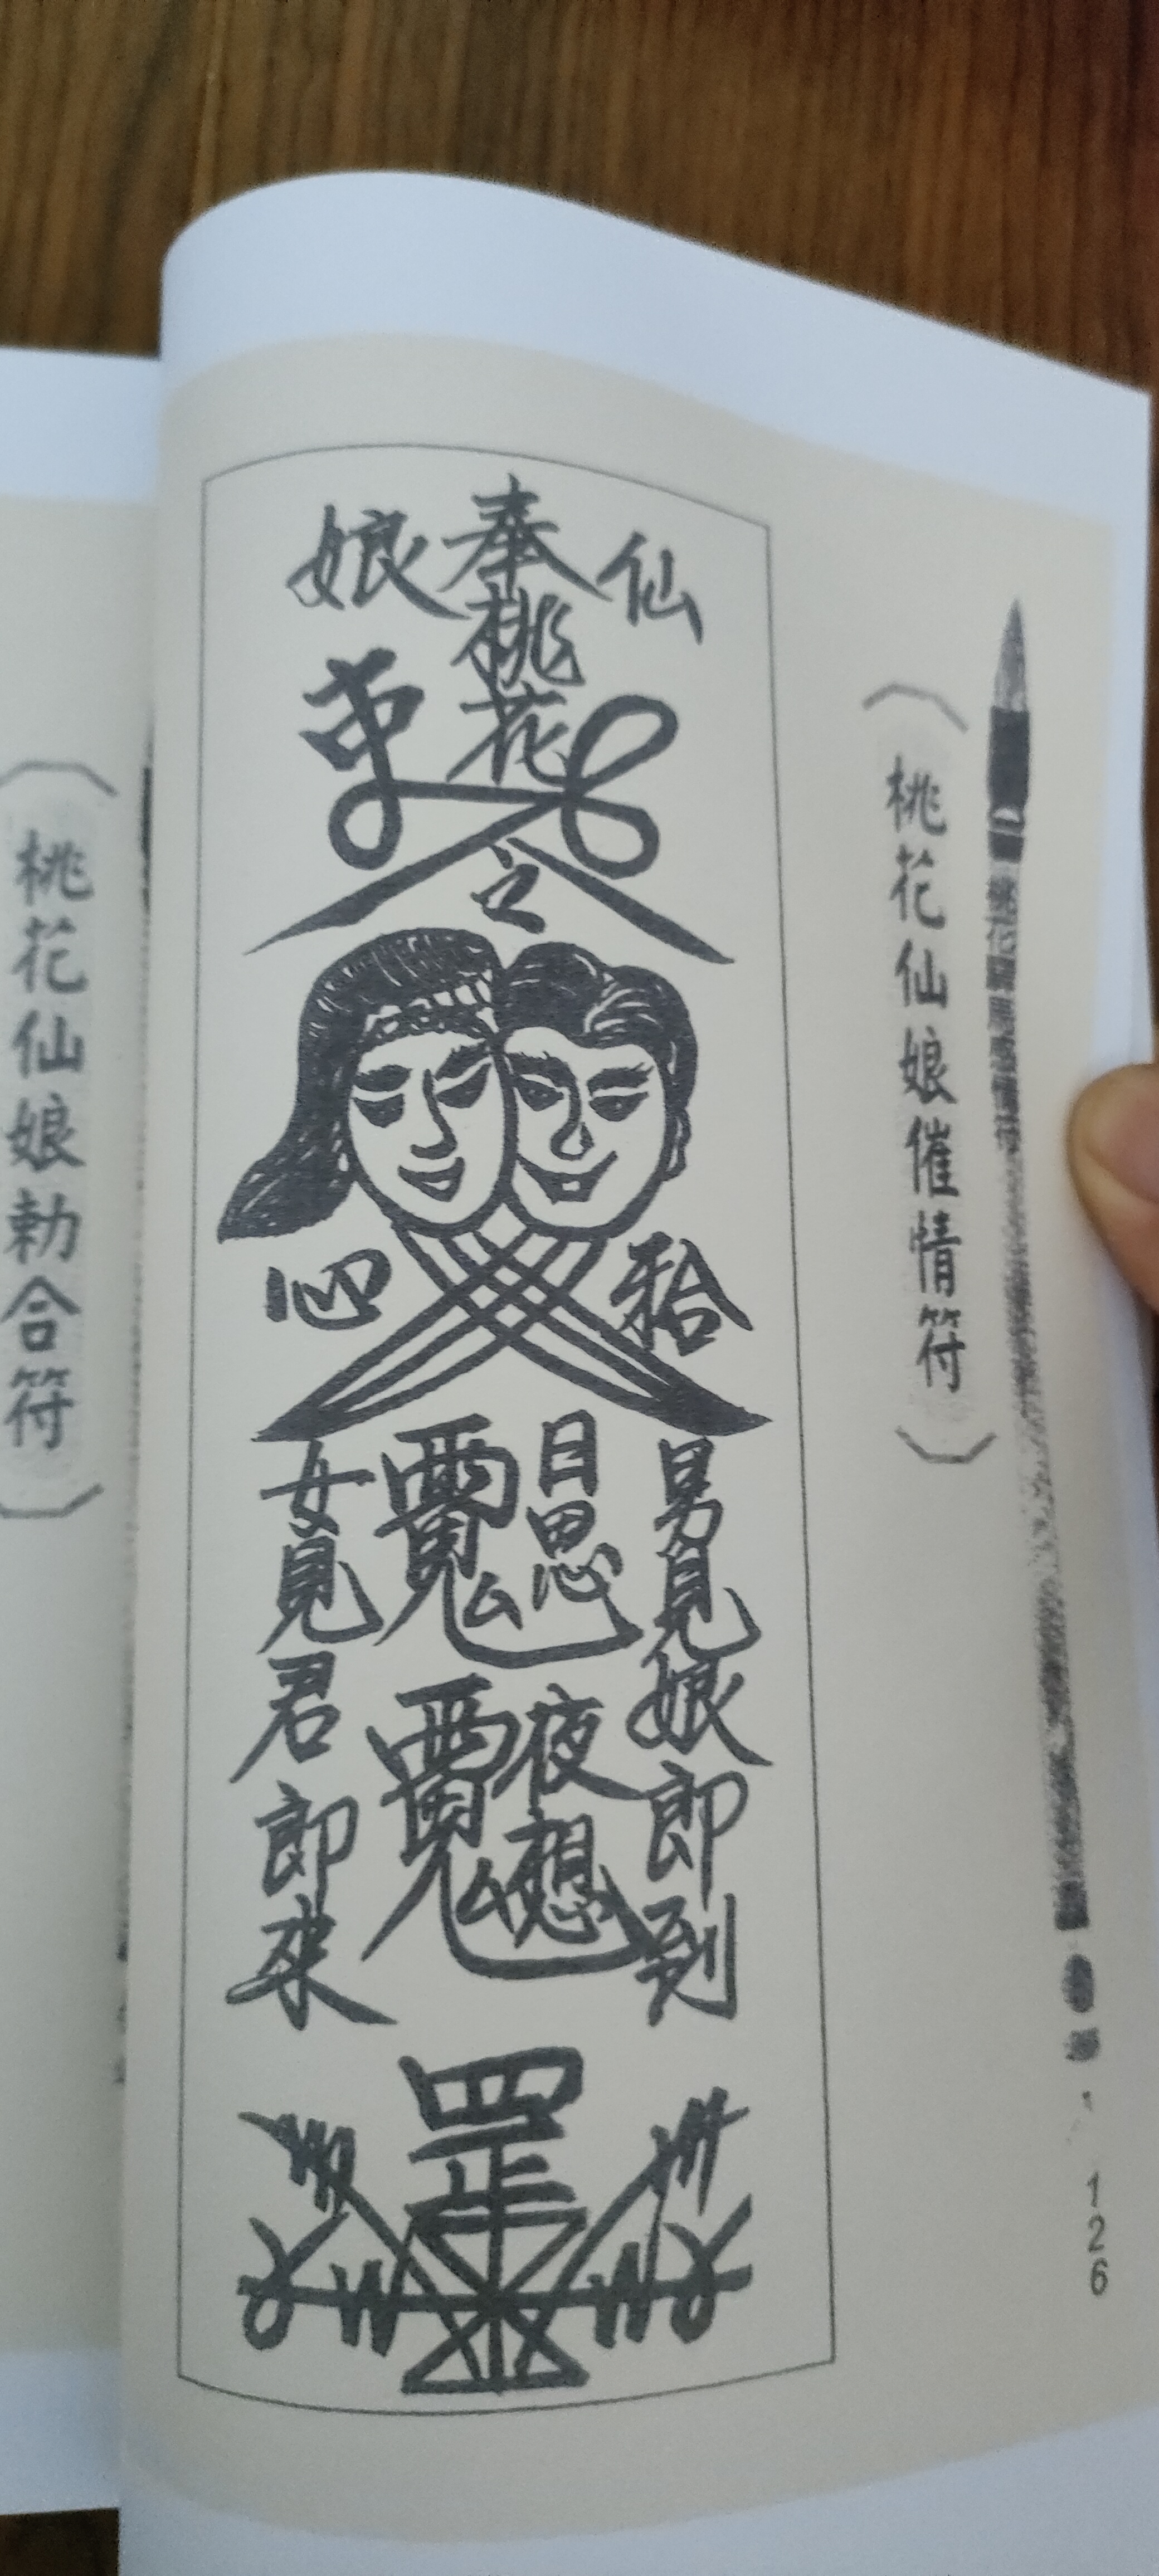 桃花驛馬感情符
126
(桃花仙娘催情符)
仙
奉桃花
娘
之
男見娘即到
日思
夜想
女見君即來
罡
(桃花仙娘勅合符)